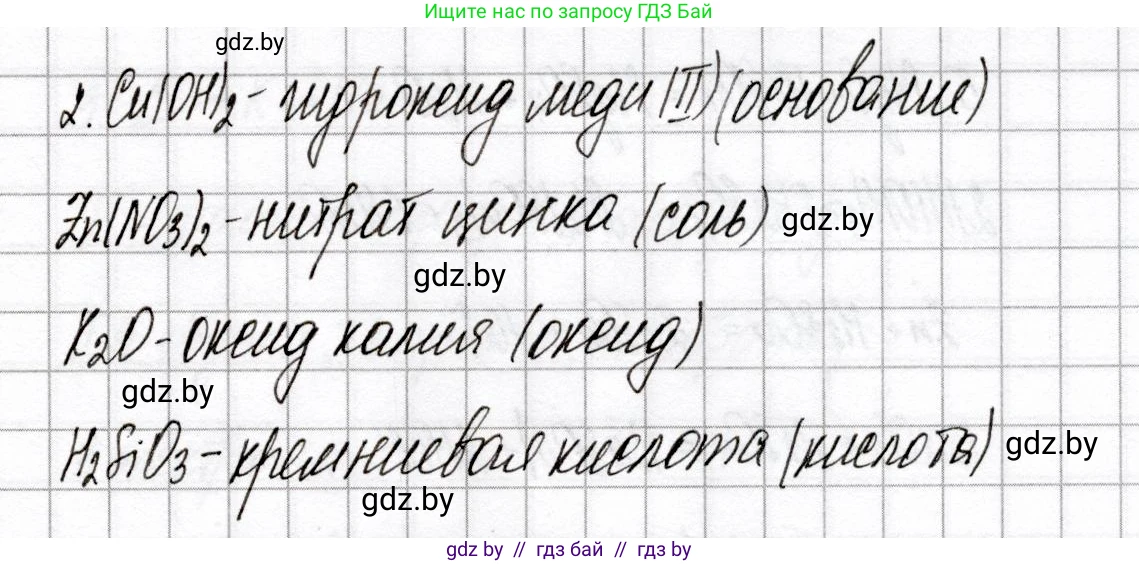 Ищите нас по запросу ГДЗ Бай
gdz.by
2. Cu(OH)2 - гидроксид меди (II) (основание)
Zn(NO3)2 - нитрат цинка (соль) gdz.by
gdz.by
K2O - оксид калия (оксид)
gdz.by
H2SiO3 - кремниевая кислота (кислота) gdz.by
gdz.by
gdz by // гдз бай // гдз by